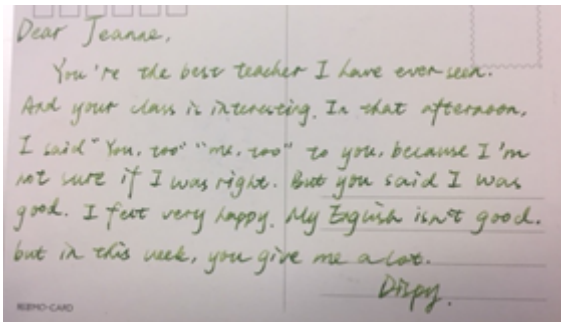 Dear Jeanne,
You're the best teacher I have ever seen.
And your class is interesting. In that afternoon,
I said "You, too" "me, too" to you, because I'm
not sure if I was right. But you said I was
good. I felt very happy. My English isn't good.
but in this week, you give me a lot.
Dispy.